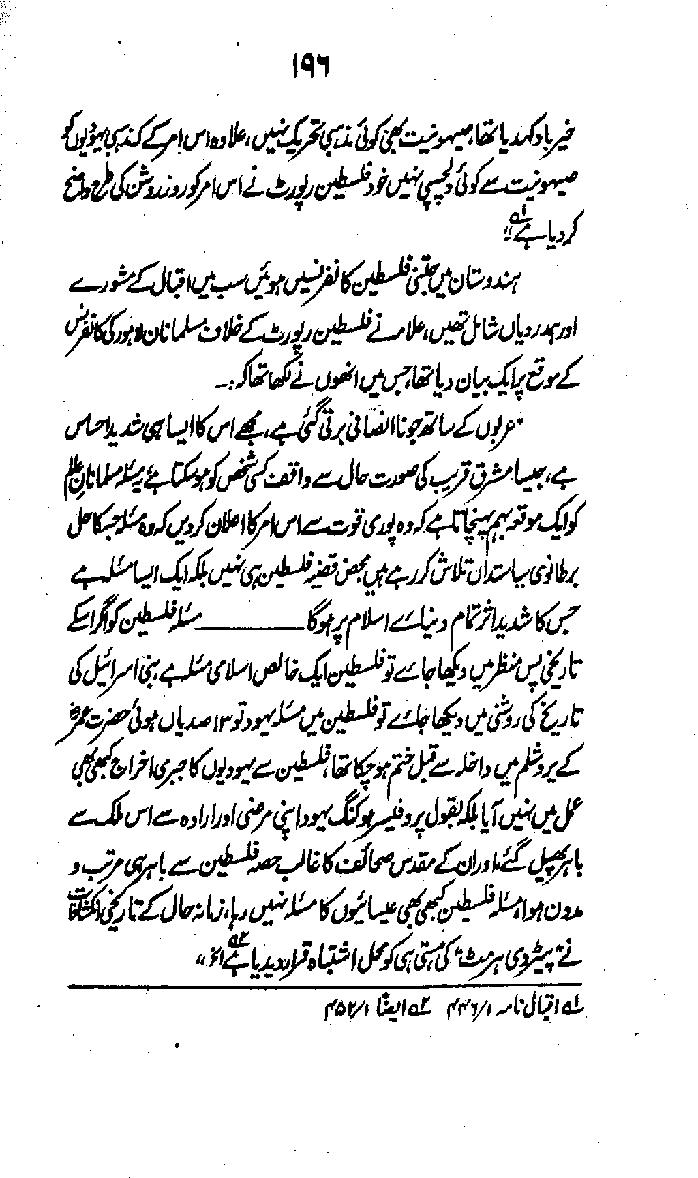 ۱۹۶
خیر باد کہدیا تھا، صیہونیت بھی کوئی مذہبی تحریک نہیں، علاوہ اس امر کے کہ مذہبی یہودیوں کو
صیہونیت سے کوئی دلچسپی نہیں خود فلسطین رپورٹ نے اس امر کو روز روشن کی طرح واضح
کر دیا ہے لہ"
ہندوستان میں جتنی فلسطین کانفرنسیں ہوئیں سب میں اقبال کے مشورے
اور ہمدردیاں شامل تھیں، علامہ نے فلسطین رپورٹ کے خلاف مسلمانان لاہور کی کانفرنس
کے موقع پر ایک بیان دیا تھا، جس میں انھوں نے لکھا تھا کہ :۔
"عربوں کے ساتھ جو نا انصافی برتی گئی ہے، مجھے اس کا ایسا ہی شدید احساس
ہے، جیسا مشرق قریب کی صورت حال سے واقف کسی شخص کو ہو سکتا ہے یہ مسئلہ مسلمانان عالم
کو ایک موقعہ بہم پہنچاتا ہے کہ وہ پوری قوت سے اس امر کا اعلان کر دیں کہ وہ مسئلہ جسکا حل
برطانوی سیاستداں تلاش کر رہے ہیں محض قضیہ فلسطین ہی نہیں بلکہ ایک ایسا مسئلہ ہے
جس کا شدید اثر تمام دنیائے اسلام پر ہوگا ــــــــــ مسئلہ فلسطین کو اگر اسکے
تاریخی پس منظر میں دیکھا جائے تو فلسطین ایک خالص اسلامی مسئلہ ہے، بنی اسرائیل کی
تاریخ کی روشنی میں دیکھا جائے تو فلسطین میں مسئلہ یہود تو ۱۳ صدیاں ہوئی حضرت عمرؓ
کے یروشلم میں داخلہ سے قبل ختم ہو چکا تھا، فلسطین سے یہودیوں کا جبری اخراج کبھی بھی
عمل میں نہیں آیا بلکہ بقول پروفیسر ہوکنگ یہود اپنی مرضی اور ارادہ سے اس ملک سے
باہر پھیل گئے، اور ان کے مقدس صحائف کا غالب حصہ فلسطین سے باہر ہی مرتب و
مدون ہوا، مسئلہ فلسطین کبھی بھی عیسائیوں کا مسئلہ نہیں رہا، زمانہ حال کے تاریخی انکشافات
نے "پیٹر دی ہرمٹ" کی ہستی ہی کو محل اشتباہ قرار دیدیا ہے ۲ہ"
لہ اقبال نامہ ۱/۴۴۶ ۲ہ ایضاً ۱/۴۵۲